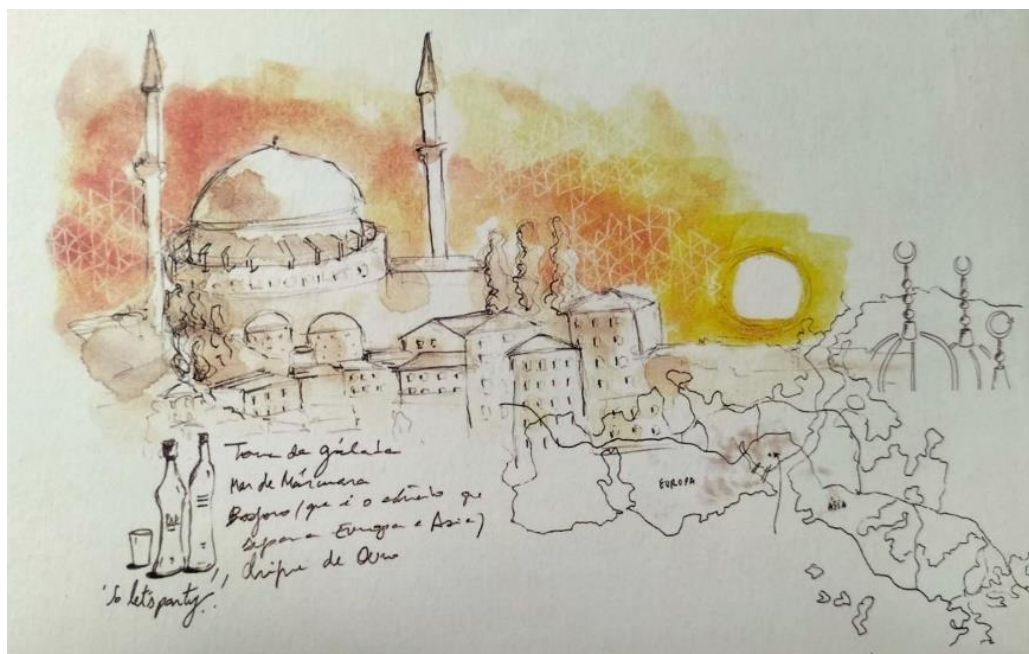 Torre de gálata
Mar de Mármara
Bósforo (que é o estreito que
separa a Europa e Asia)
Chifre de Ouro
"So let's party!"
EUROPA
ÁSIA